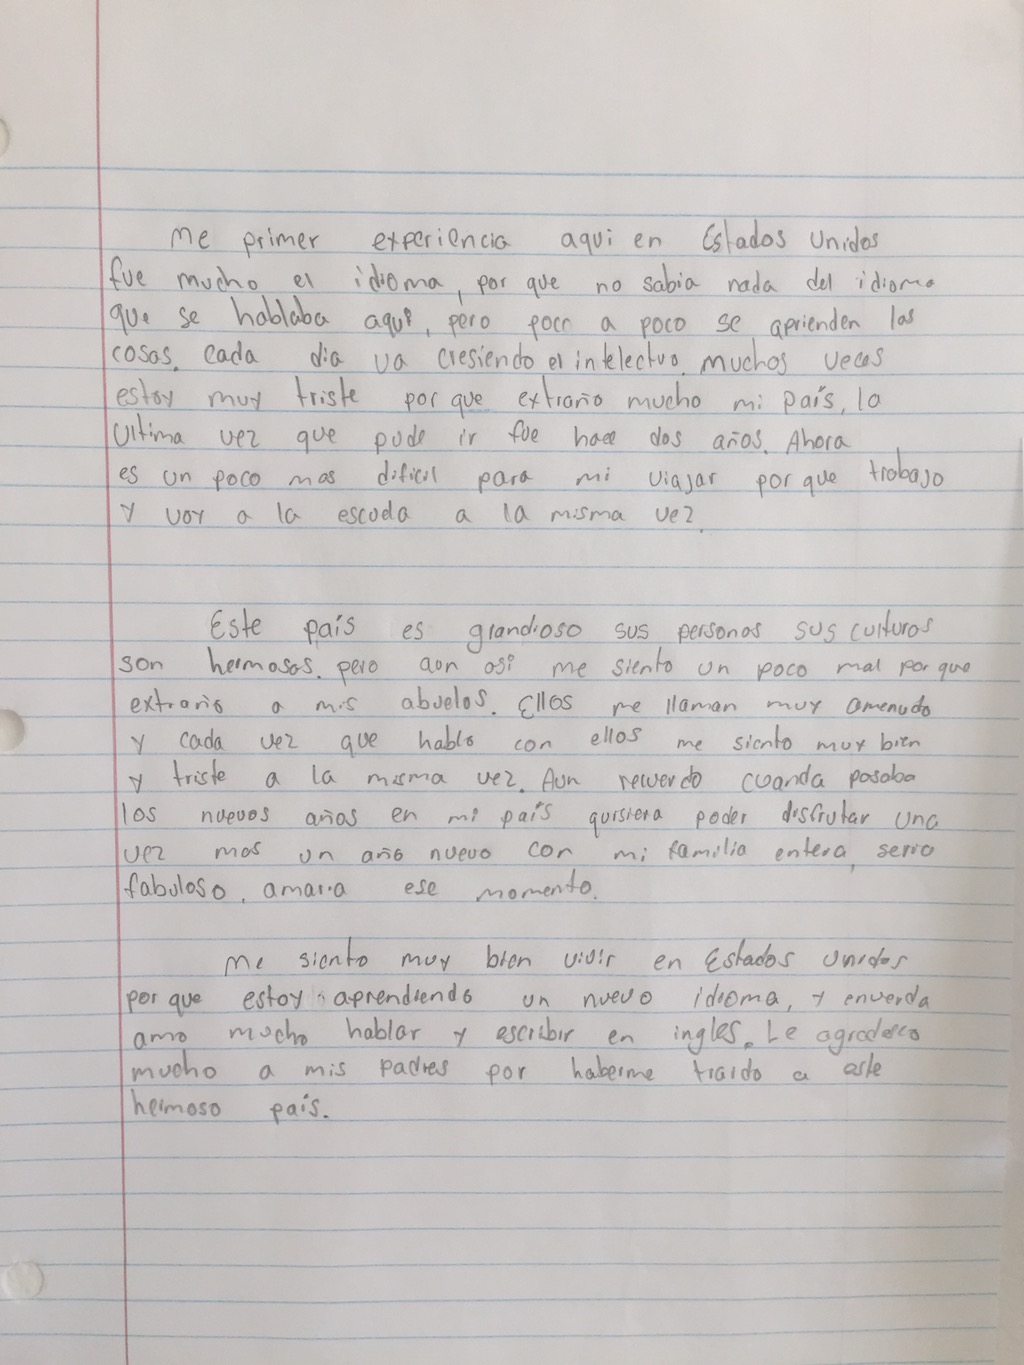 Me primer experiencia aqui en Estados Unidos
fue mucho el idioma, por que no sabia nada del idioma
que se hablaba aquí, pero poco a poco se aprienden las
cosas. Cada dia va cresiendo el intelectuo. Muchos veces
estoy muy triste por que extraño mucho mi país, la
Ultima vez que pude ir fue hace dos años. Ahora
es un poco mas dificil para mi viajar por que trabajo
y voy a la escuela a la misma vez.
Este país es grandioso sus personas sus culturas
son hermosas. pero aun así me siento un poco mal por que
extraño a mis abuelos. Ellos me llaman muy amenudo
y cada vez que hablo con ellos me siento muy bien
y triste a la misma vez. Aun recuerdo cuando pasaba
los nuevos años en mi país quisiera poder disfrutar una
vez mas un año nuevo con mi familia entera, seria
fabuloso, amaria ese momento.
Me siento muy bien vivir en Estados Unidos
por que estoy aprendiendo un nuevo idioma, y enverda
amo mucho hablar y escribir en ingles. Le agradesco
mucho a mis padres por haberme traido a este
hermoso país.